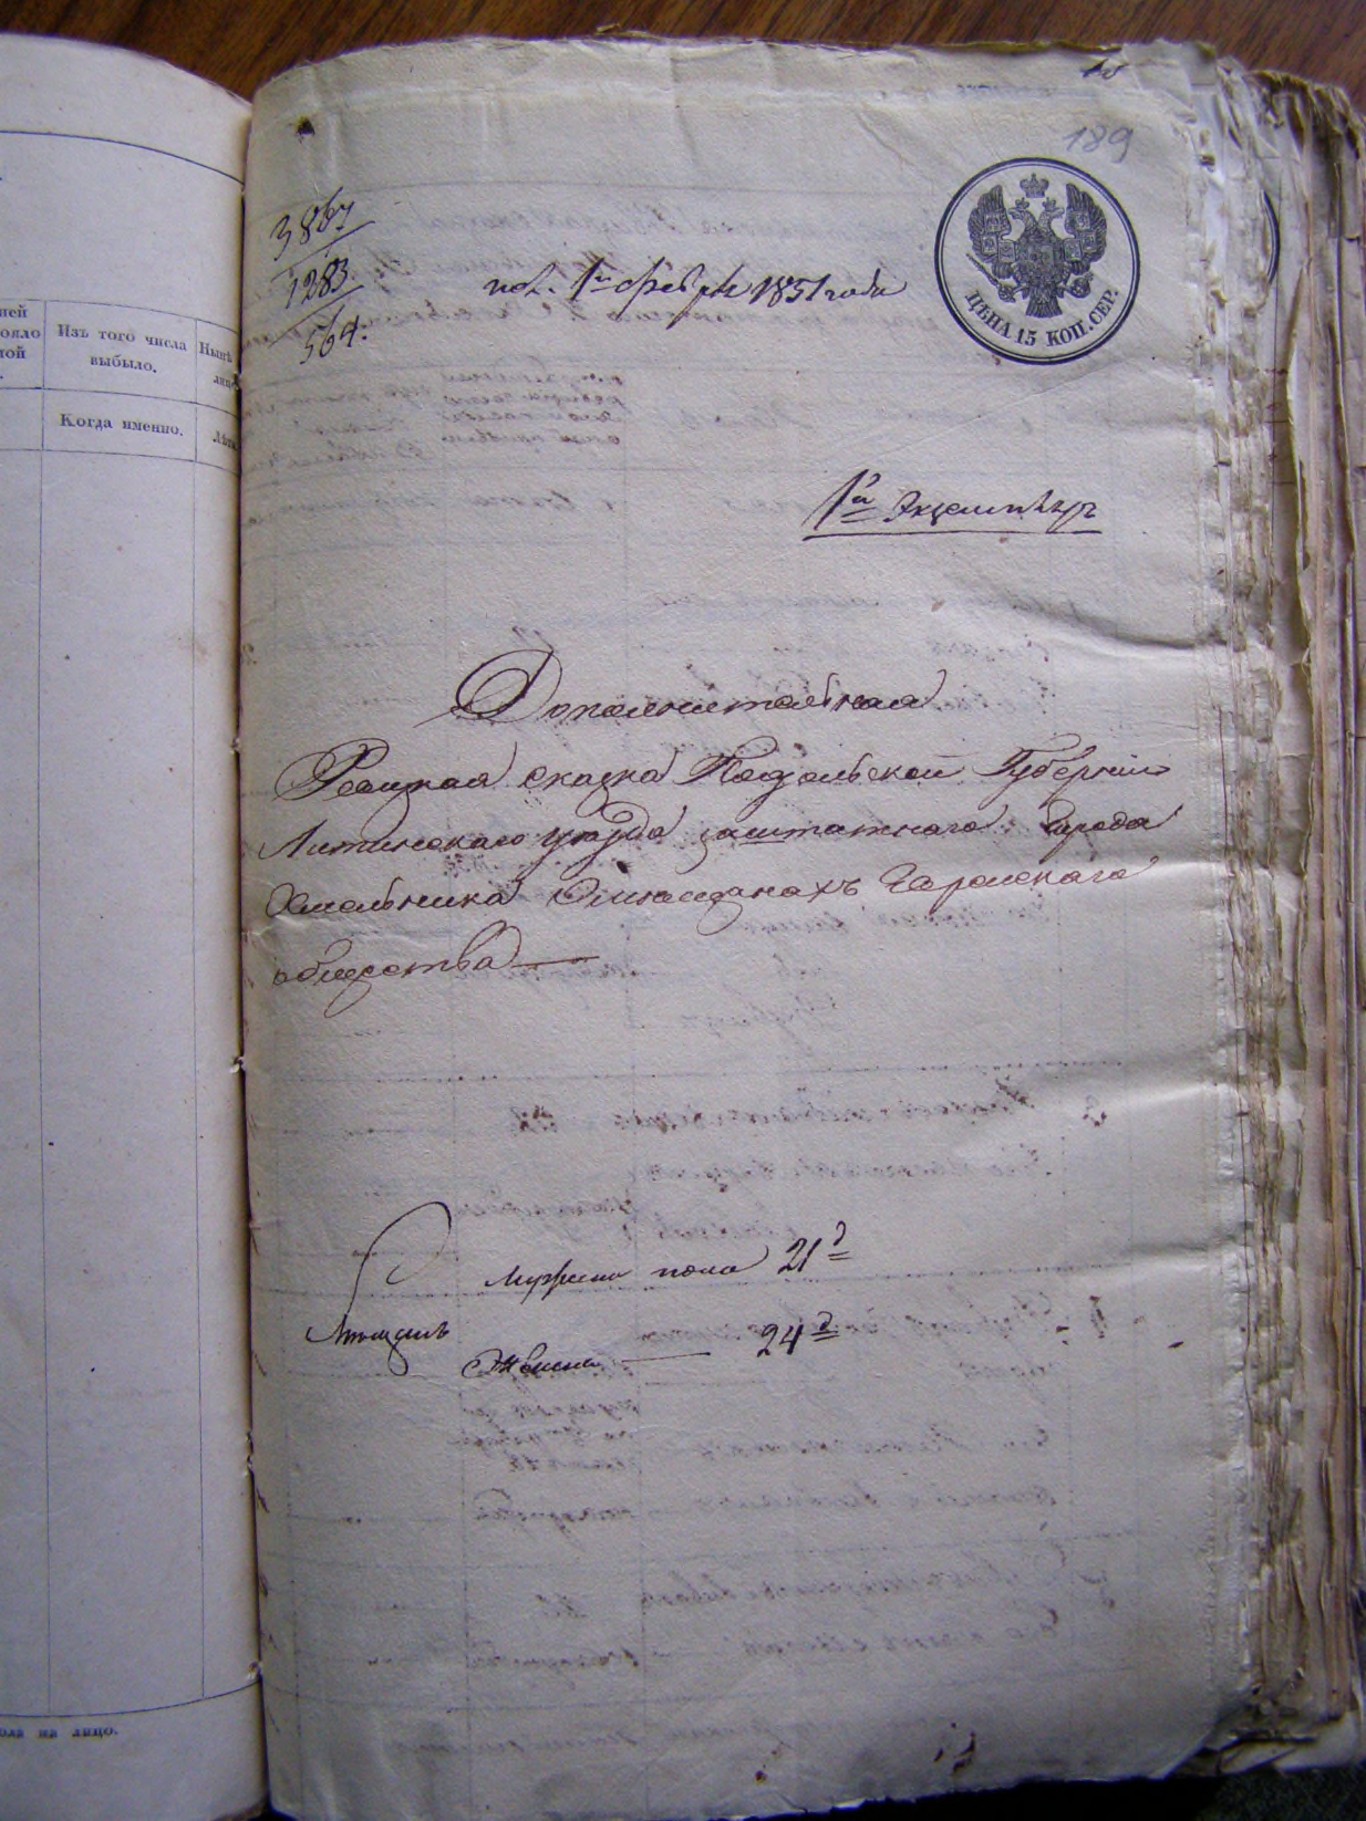 ней
ояло
ной
Изъ того числа
выбыло.
Нынѣ
лиц
Когда именно.
Лѣта
ола на лицо.
189
3867
1283
564.
пол. 1го февраля 1851 года
ЦѢНА 15 КОП. СЕР.
1й Экземпляръ
Дополнительная
Ревизкая сказка Подольской Губерніи
Литинскаго уѣзда заштатнаго города
Хмельника О мѣщанахъ Еврейскаго
общества
Мужеска пола 21 д
Мѣщанъ
Женска 24 д